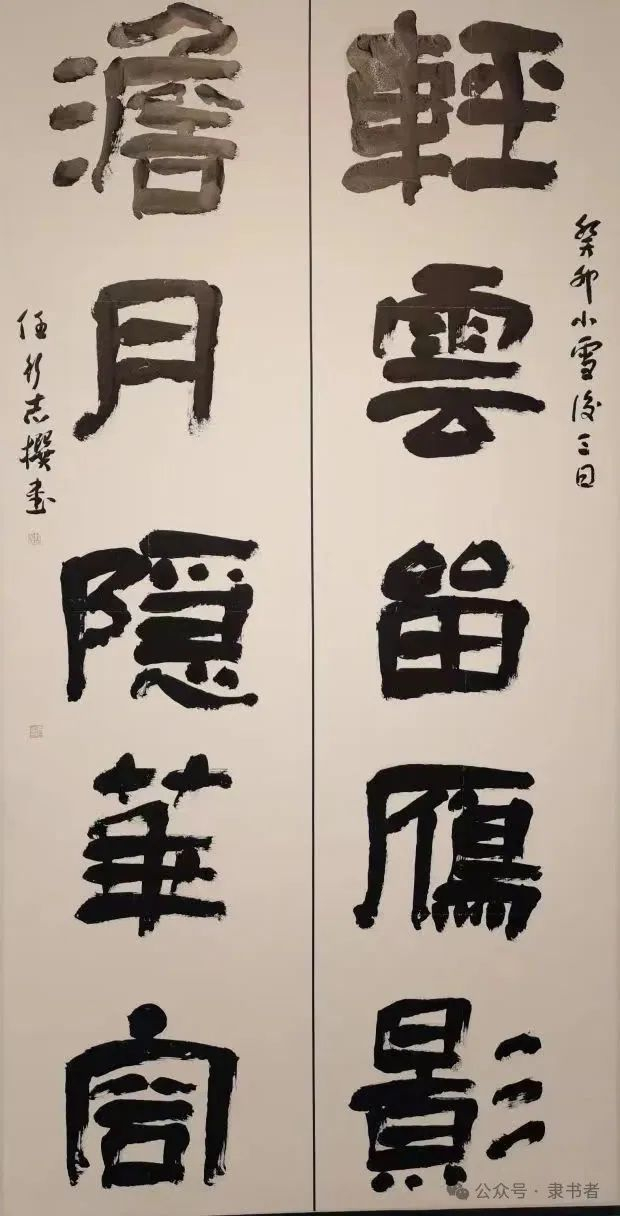 癸卯小雪後三日
輕雲畱鴈影
澹月隱華宮
任行志撰書
公众号 · 隶书者